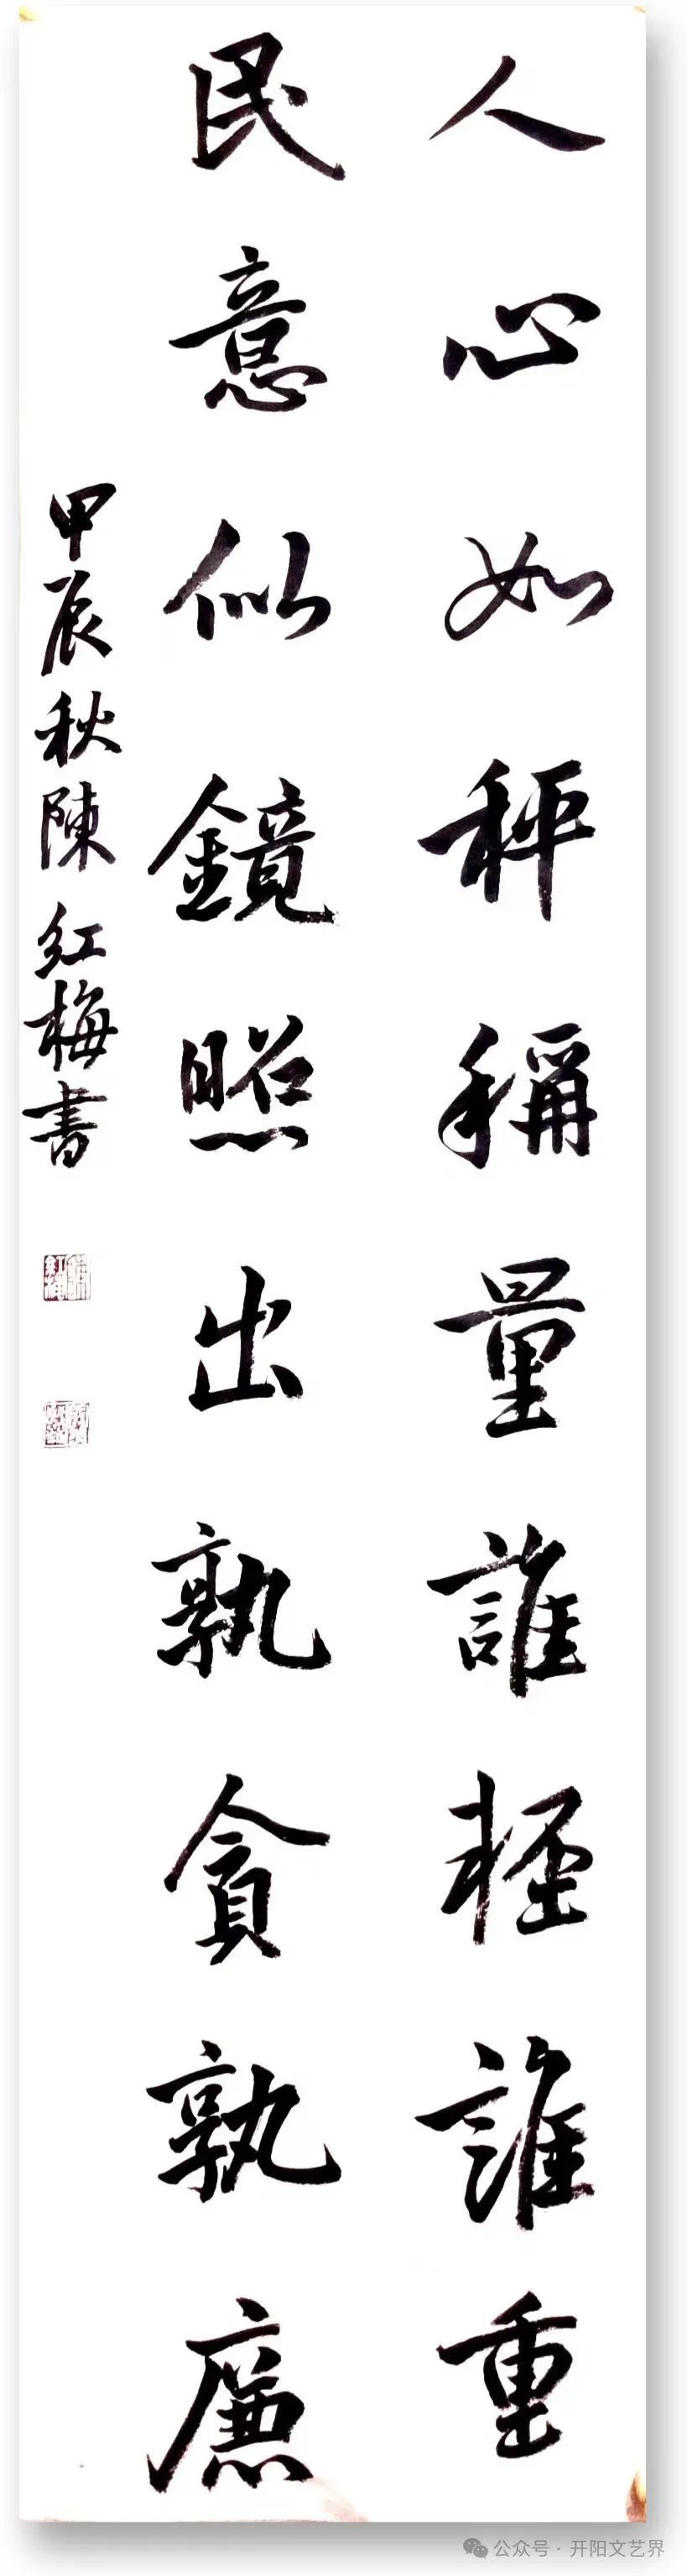 人心如秤稱量誰輕誰重
民意似鏡照出孰貪孰廉
甲辰秋陳红梅書
公众号·开阳文艺界